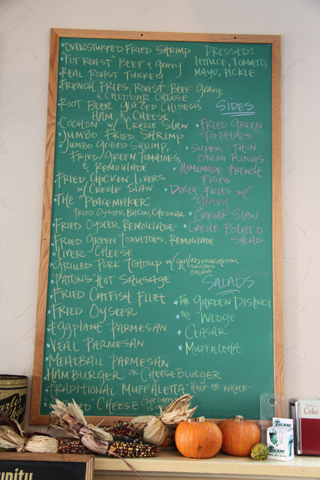 "OVERSTUFFED FRIED SHRIMP
"POT ROAST" BEEF & GRAVY
REAL ROAST TURKEY
FRENCH FRIES ROAST BEEF GRAVY
& CHEDDAR CHEESE
ROOT BEER GLAZED CHISESIS
HAM & CHEESE
COCHON W/ CREOLE SLAW
JUMBO FRIED SHRIMP
JUMBO GRILLED SHRIMP,
FRIED GREEN TOMATOES,
& REMOULADE
FRIED CHICKEN LIVERS
W/ CREOLE SLAW
THE "PEACEMAKER"
FRIED OYSTER, BACON, CHEDDAR
FRIED OYSTER REMOULADE
FRIED GREEN TOMATOES, REMOULADE
LIVER CHEESE
GRILLED PORK TCHOUP W/
PATTON'S HOT SAUSAGE
FRIED CATFISH FILET
FRIED OYSTER
EGGPLANT PARMESAN
VEAL PARMESAN
MEATBALL PARMESAN
HAMBURGER OR CHEESEBURGER
TRADITIONAL MUFFALETTA HALF OR WHOLE
CHEESE
DRESSED:
LETTUCE, TOMATO,
MAYO, PICKLE
SIDES
FRIED GREEN
TOMATOES
SUPER-THIN
ONION RINGS
HOMEMADE FRENCH
FRIES
DIRTY FRIES W/
GRAVY
CREOLE SLAW
CREOLE POTATO
SALAD
SALADS
THE GARDEN DISTRICT
THE WEDGE
CAESAR
MUFFALETTA
Coke
unity